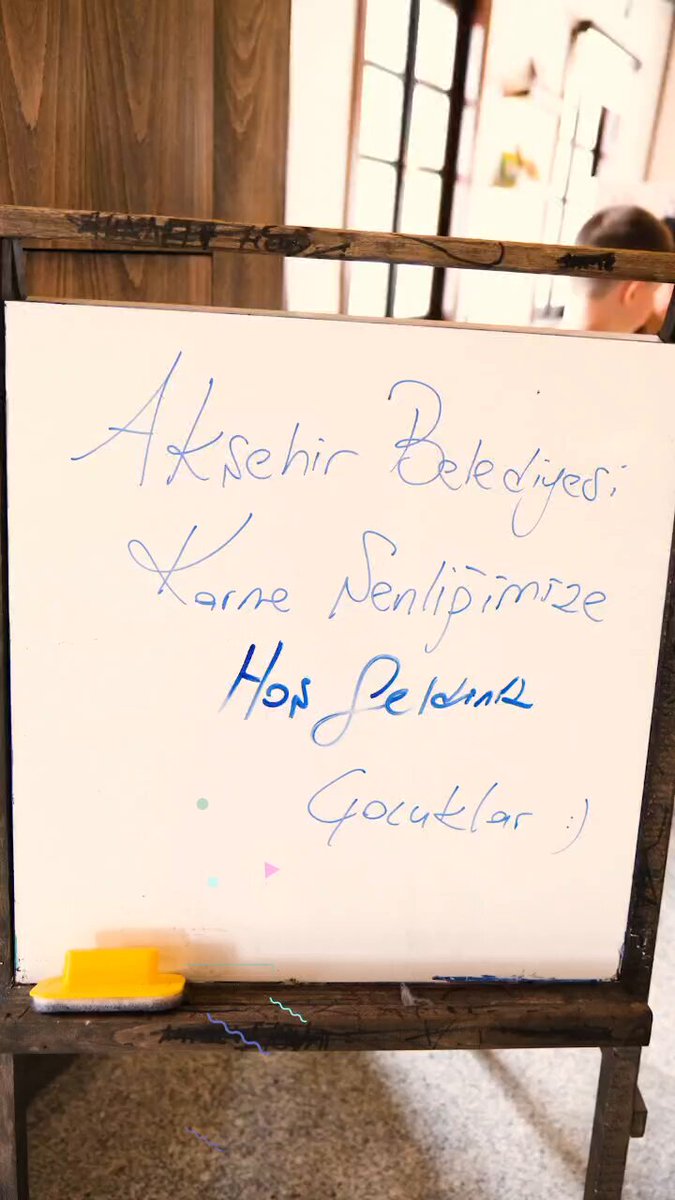 Akşehir Belediyesi
Karne Şenliğimize
Hoş Geldiniz
Çocuklar :)